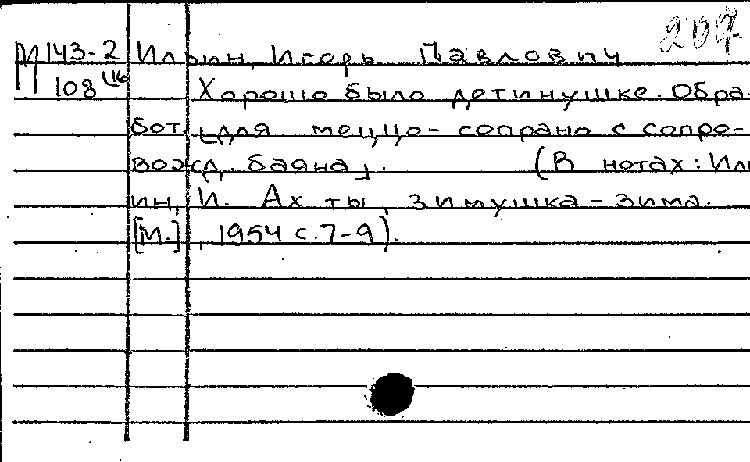 207
М 143-2 Ильин, Игорь Павлович
108 Хорошо было детинушке. Обра-
бот. [для меццо-сопрано с сопро-
вожд. баяна]. (В нотах: Иль
ин, И. Ах ты, зимушка-зима.
[М.], 1954 с. 7-9).